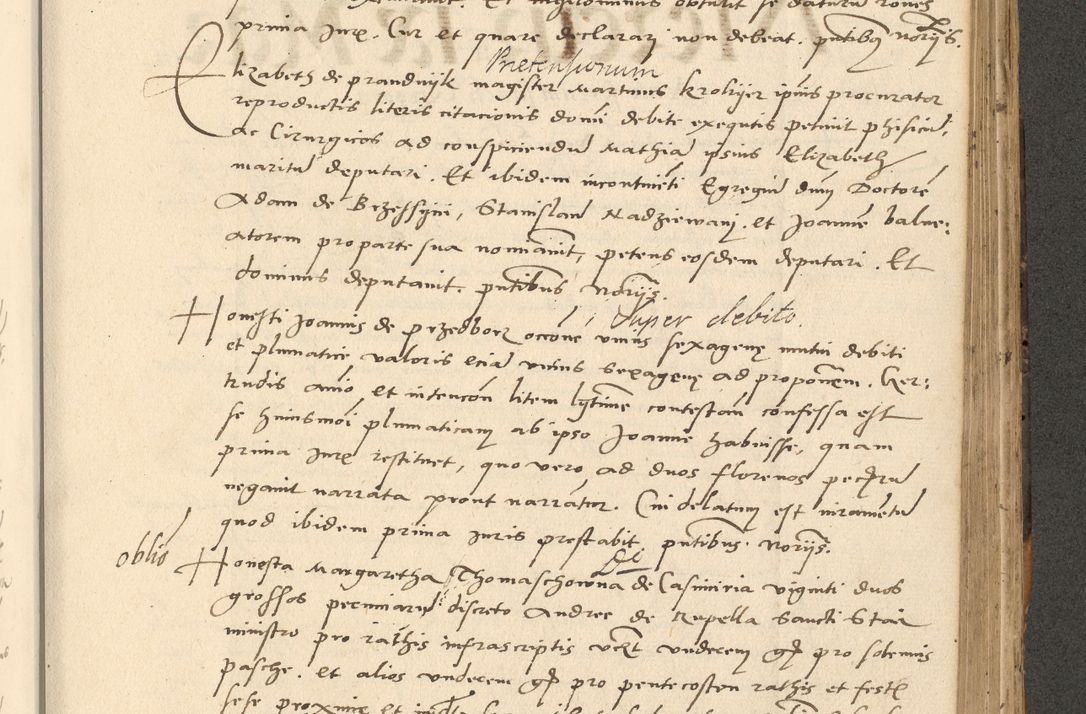 prima Jurę. Cur et quare declarari non debeat. pñtibus notoriis.
Pretensionum
Elizabeth de prandnijk magister Martinus Krokijer ipsius procurator
reproductis literis citacionis domi debite exequtis petiuit phisicũ,
ac Cirurgicos ad conspiciendũ Mathiã ipsius Elizabeth
maritũ deputari. Et ibidem incontinẽti Egregiũ dñm Doctorẽ
Adam de Brzessijni, Stanislaũ Nadziewanj. et Joannẽ balne:
atorem pro parte sua nominauit, petens eosdem deputari. Et
dominus deputauit. pñtibus notoriis.
Super debito.
Honesti Joannis de przedborz occõne vnius sexagenę mutui debiti
et plumatice valoris eciã vnius sexagenę ad proponẽm. Ger:
trudis animo et intencõn litem lgtimẽ contestãn confessa est
se huiusmõi plumaticam ab ipso Joanne habuisse, quam
prima Jurę restituet, quo vero ad duos florenos pecũ
negauit narrata prout narrãtur. Cui delatum est iuramẽtũ
quod ibidem prima Juris prestabit. pñtibus notoriis.
oblio
Honesta Margaretha Thomaschowna de Casimiria viginti duos
grossos pecuniarũ discreto Andree de Capella Sancti Stañ
ministro pro rathis infrascriptis vcʒt vndecem gr pro solemnis
pasche. et alios vndecem gr pro pentecosten rathis et festi
sese proxime et